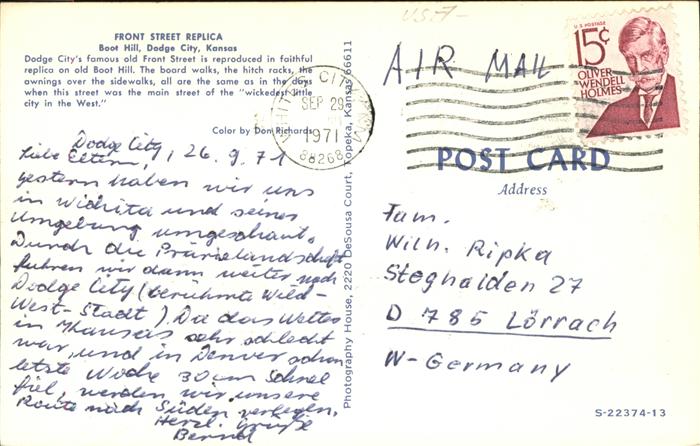 USA
FRONT STREET REPLICA
Boot Hill, Dodge City, Kansas
Dodge City's famous old Front Street is reproduced in faithful
replica on old Boot Hill. The board walks, the hitch racks, the
awnings over the sidewalks, all are the same as in the days
when this street was the main street of the "wickedest little
city in the West."
Color by Don Richards
Dodge City, 26.9.71
Liebe Eltern,
gestern haben wir uns
in Wichita und seiner
Umgebung umgeschaut.
Durch die Prärielandschaft
fuhren wir dann weiter nach
Dodge City (berühmte Wild-
West-Stadt). Da das Wetter
in Khansas sehr schlecht
war, und in Denver schon
letzte Woche 30 cm Schnee
fiel, werden wir unsere
Route nach Süden verlegen.
Herzl. Grüße
Bernd
Photography House, 2220 DeSousa Court, Topeka, Kansas 66611
WHITE CITY
SEP 29
1971
88268
AIR MAIL
U.S. POSTAGE
15¢
OLIVER
WENDELL
HOLMES
POST CARD
Address
Fam.
Wilh. Ripka
Steghalden 27
D 785 Lörrach
W-Germany
S-22374-13